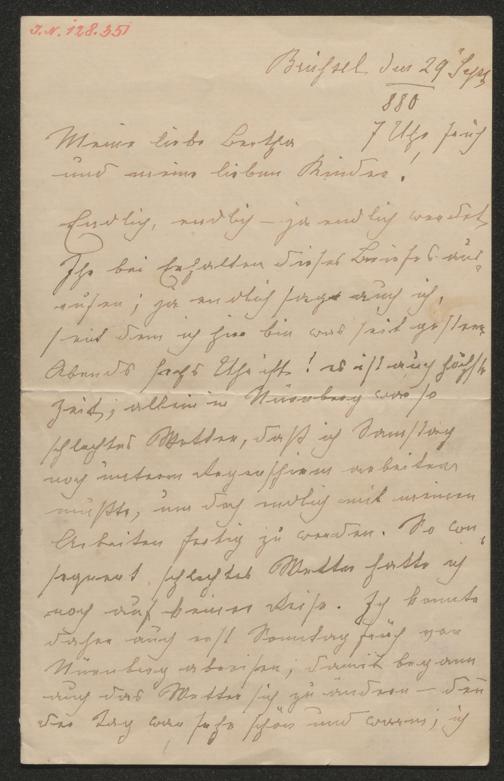 J.N. 128.351
Brüssel den 29 Sept
880
7 Uhr früh
Meine liebe Bertha
und meine lieben Kinder!
Endlich, endlich – ja endlich werdet
Ihr bei Erhalten dieses Briefes aus-
rufen; ja endlich sage auch ich,
seit dem ich hier bin was seit gestern
Abends sechs Uhr ist! es ist auch höchste
Zeit; allein in Nürnberg war so
schlechtes Wetter, daß ich Samstag
noch unterm Regenschirm arbeiten
mußte, um doch endlich mit meinen
Arbeiten fertig zu werden. So con-
sequent schlechtes Wetter hatte ich
noch auf keiner Reise. Ich konnte
daher auch erst Sonntag früh von
Nürnberg abreisen; damit begann
auch das Wetter sich zu ändern – den
der Tag war sehr schön und warm; ich